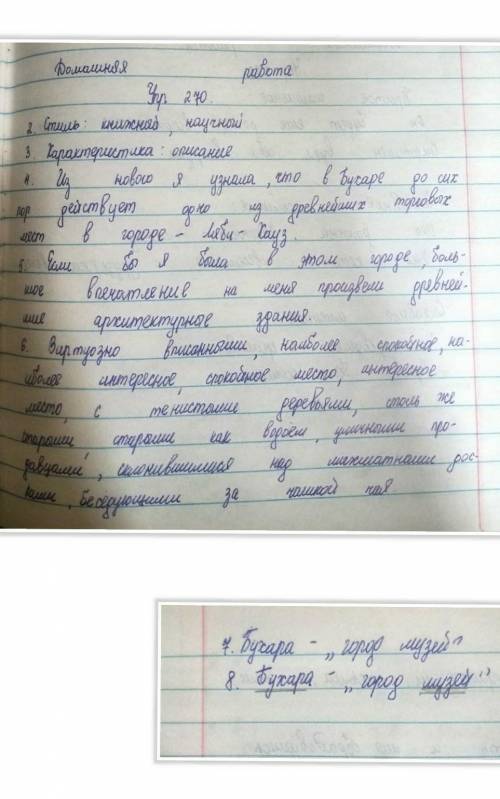 Домашняя работа
Упр 270.
2. Стиль: книжнай, научный
3. Характеристика: описание
4. Из нового я узнала, что в Бухаре до сих
пор действует одно из древнейших торговых
мест в городе - Ляби-Хауз.
5. Если бы я была в этом городе, боль-
шое впечатление на меня произвели древней-
шие архитектурные здания.
6. Виртуозно вписанными, наиболее спокойное, на-
иболее интересное, спокойное место, интересное
место, с тенистыми деревьями, столь же
старыми, старыми как водоём, уличными про-
давцами, склонившимися над шахматными дос-
ками, беседующими за чашкой чая.
7. Бухара - „город музей"
8. Бухара - „город музей"